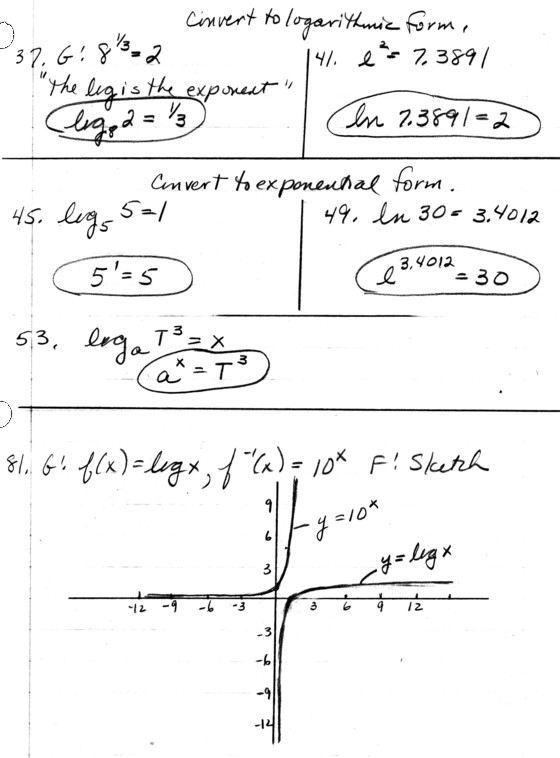 Convert to logarithmic form.
37. G: 8^(1/3) = 2
"The log is the exponent"
log₈ 2 = 1/3
41. e² = 7.3891
ln 7.3891 = 2
Convert to exponential form.
45. log₅ 5 = 1
5¹ = 5
49. ln 30 = 3.4012
e^(3.4012) = 30
53. logₐ T³ = x
aˣ = T³
81. G: f(x) = log x, f⁻¹(x) = 10ˣ F: Sketch
y = 10ˣ
y = log x
9
6
3
-12 -9 -6 -3 3 6 9 12
-3
-6
-9
-12